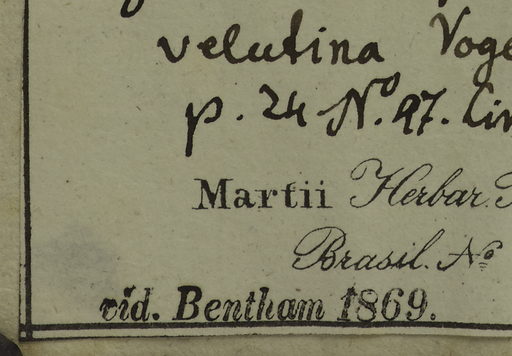 velutina Voge
p. 24 No. 97. Lin
Martii Herbar.
Brasil. No
vid. Bentham 1869.